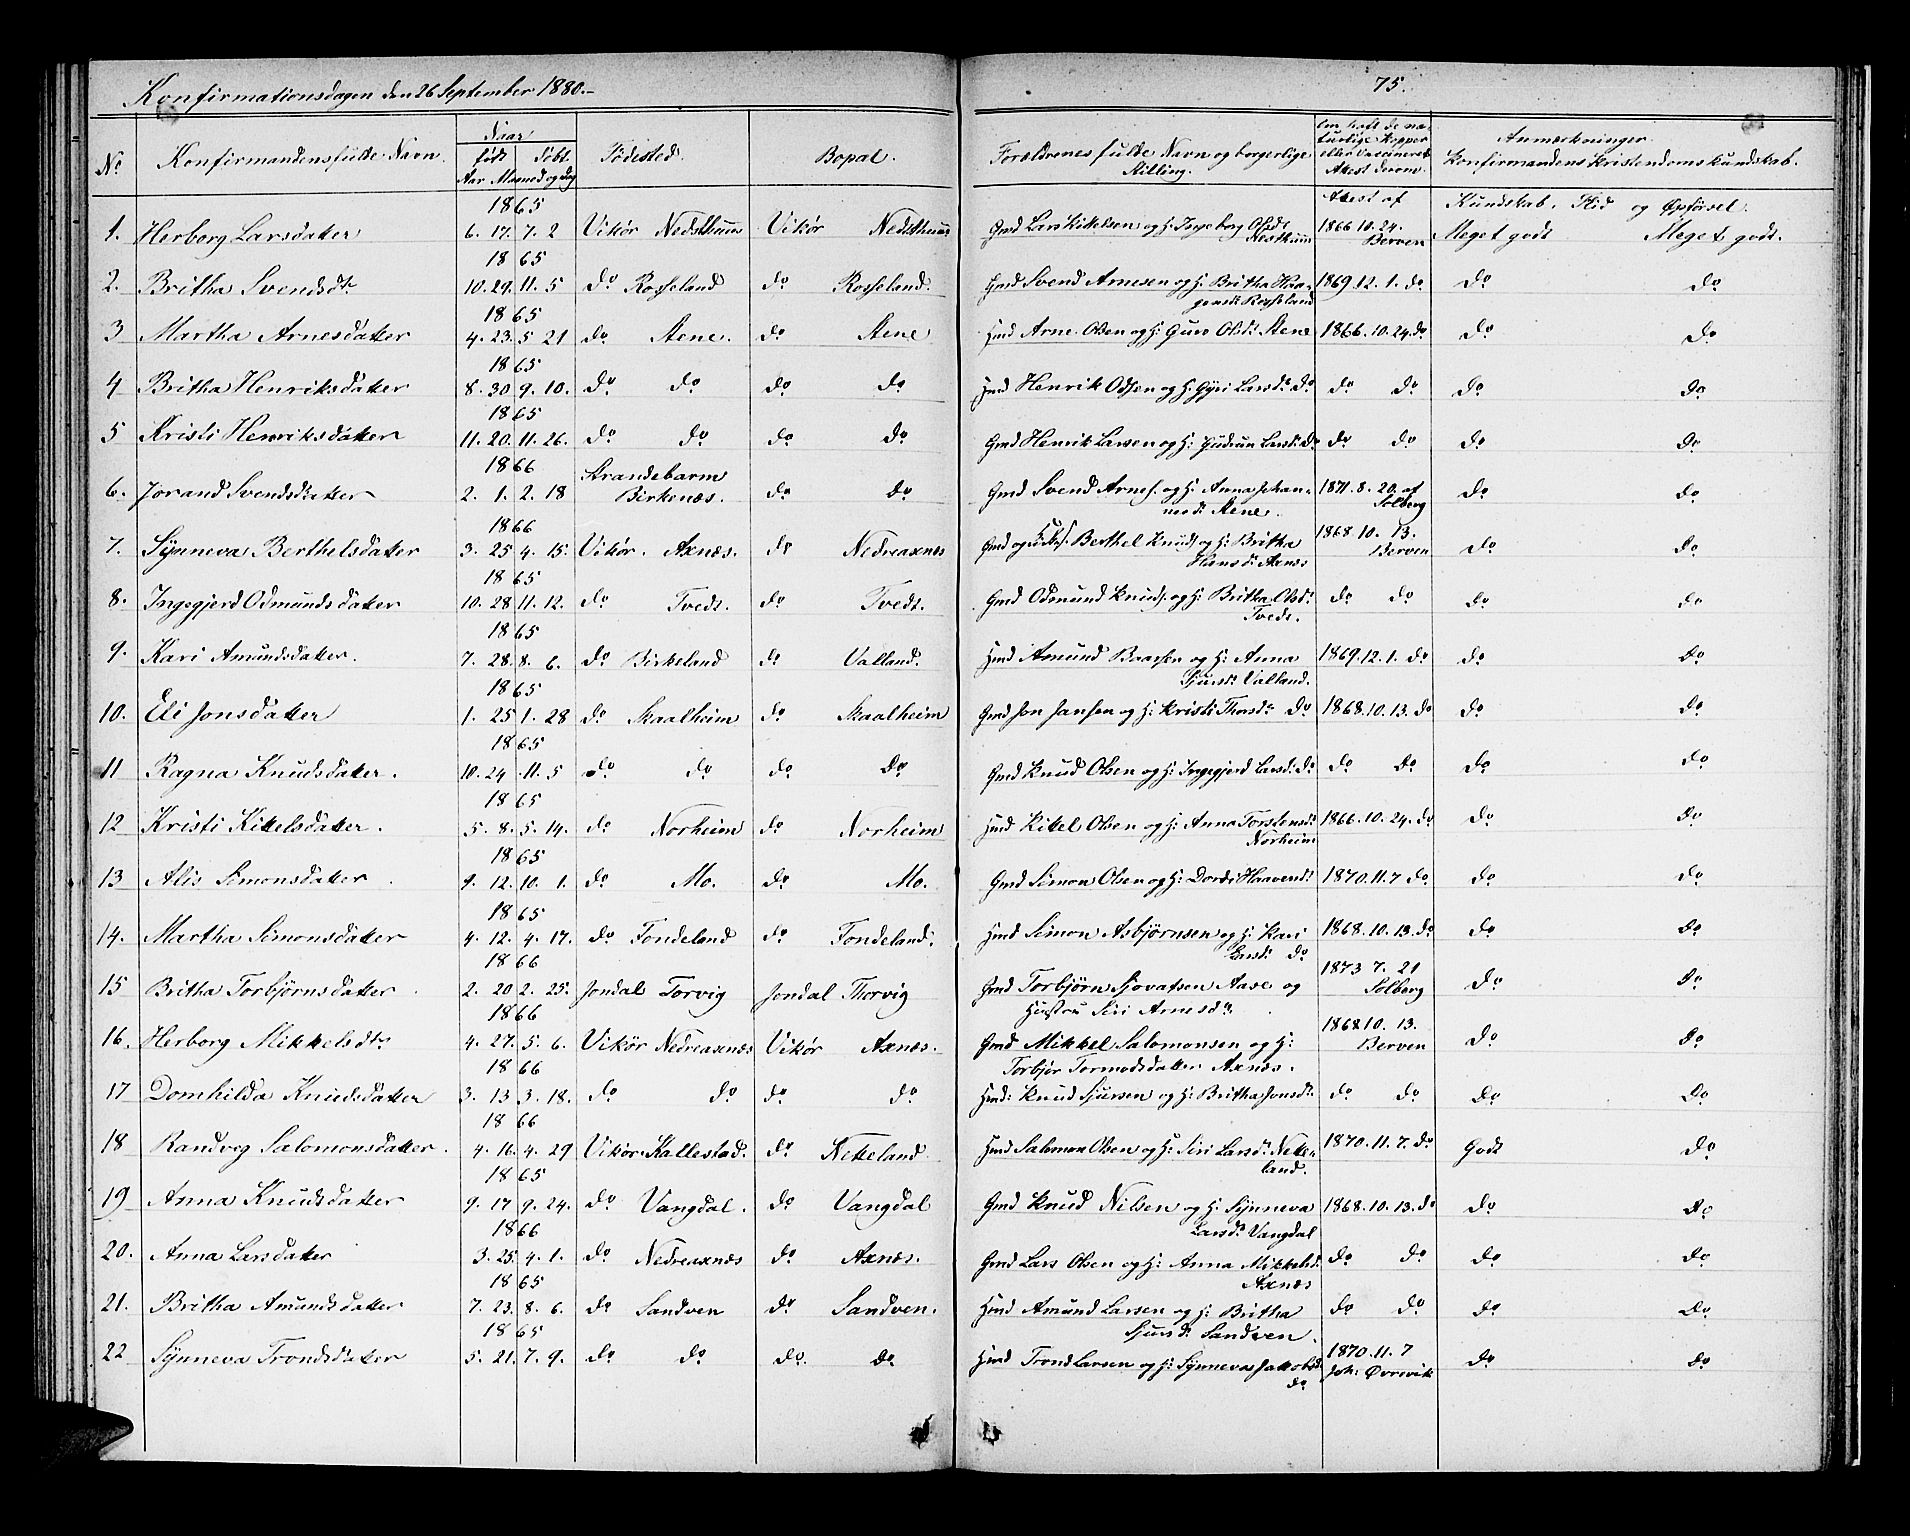 Konfirmationsdagen den 26 September 1880.-
75.
No Konfirmandens fulde Navn. Naar Födested. Bopæl. Forældrenes fulde Navn og borgerlige Stilling. Om haft de naturlige Kopper eller Vaccineret. Attest derom. Anmærkninger. Konfirmandens Kristendomskundskab.
født döbt.
Aar Maaned og Dag
Attest af Kundskab, Flid og Opførsel.
1865
1. Herborg Larsdatter 6. 17. 7. 2 Vikör Vikör Gmd Lars Kittelsen og H: Ingeborg Olsdt 1866 10. 24. Berven Meget godt Meget godt.
1865
2. Britha Svendsdtr 10. 29. 11. 5 do Rosseland do Rosseland. Gmd Svend Arnesen og H: Britha Haagensdr Rosseland 1869. 12. 1. do do do
1865
3 Martha Arnesdatter 4. 23. 5 21 do Stene. do Stene Hmd Arne Olsen og H: Guro Olsdr Stene 1866. 10. 24. do do do
1865
4 Britha Henriksdatter 8. 30 9. 10. do do do do Hmd Henrik Odsen og H: Gyri Larsdr do do do do do
1865
5 Kristi Henriksdatter 11. 20. 11. 26. do do do do Gmd Henrik Larsen og H: Gudrun Larsdr do do do do do
1866
6. Jorand Svendsdatter 2. 1. 2. 18 Strandebarm Birkenæs. do do Gmd Svend Arnes. og H: Anna Johannesdr Stene. 1871. 8. 20. af Solberg do do
1866
7. Synneva Berthelsdatter 3. 25 4. 15. Vikör. Axnæs. do Nedreaxnæs Gmd og Berthel Knuds. og H: Britha Hansdr Axnæs 1868. 10. 13. Berven do do
1865
8. Ingegjerd Odmundsdatter 10. 28 11. 12. do Tvedt. do Tvedt. Gmd Odmund Knuds. og H: Britha Olsdr Tvedt. do do do do
1865
9. Kari Amundsdatter. 7. 28. 8. 6. do Birkeland do Valland. Hmd Amund Baarsen og H: Anna Sjursdr Valland. 1869. 12. 1. do do do
1865
10. Eli Jonsdatter 1. 25 1. 28 do Skaalheim do Skaalheim Gmd Jon Jansen og H: Kristi Thorsdr do 1868. 10. 13. do do do
1865
11 Ragna Knudsdatter. 10. 24. 11. 5 do do do do Gmd Knud Olsen og H: Ingegjerd Larsdr do do do do do
1865
12 Kristi Kittelsdatter. 5. 8. 5. 14. do Norheim do Norheim Hmd Kittel Olsen og H: Anna Torstensdr Norheim 1866. 10. 24. do do do
1865
13 Alis Simonsdatter. 9. 12. 10. 1. do Mo. do Mo. Gmd Simon Olsen og H: Dordi Haavardsdr 1870. 11. 7 do do do
1865
14. Martha Simonsdatter 4. 12. 4. 17. do Tondeland do Tondeland. Hmd Simon Asbjørnsen og H: Kari Larsdr do 1868. 10. 13. do do do
1866
15 Britha Torbjörnsdatter. 2. 20 2. 25. Jondal Torvig Jondal Thorvig Gmd Torbjörn Sjovatsen Aase og Hustru Siri Arnesdr. 1873 7. 21 Solberg do do
1866
16. Herborg Mikkelsdtr 4. 27. 5. 6. Vikör Nedreaxnæs Vikör Axnæs. Gmd Mikkel Salomonsen og H: Torbjör Tormodsdatter Axnæs. 1868 10. 13. Berven do do
1866
17 Domhilda Knudsdatter 3. 13 3. 18. do do do do Hmd: Knud Sjursen og H: Britha Jonsdr do do do do
1866
18 Randveg Salomonsdatter. 4. 16. 4. 29 Vikör Kallestad. do Netteland. Hmd Salomon Olsen og H: Siri Larsdr Netteland. 1870. 11. 7. do Godt do
1865
19 Anna Knudsdatter 9. 17 9. 24. do Vangdal. do Vangdal Gmd Knud Nilsen og H: Synneva Larsdr Vangdal 1868. 10. 13. do do do
1866
20. Anna Larsdatter 3. 25. 4. 1. do Nedreaxnæs do Axnæs. Gmd Lars Olsen og H: Anna Mikkelsdr Axnæs do do do do
1865
21. Britha Amundsdatter 7. 23. 8. 6. do Sandven do Sandven. Hmd Amund Larsen og H: Britha Sjursdr Sandven. do do do do
1865
22 Synneva Trondsdatter 5. 21. 7. 9. do do do. do Hmd Trond Larsen og H: Synneva Jakobsdr do 1870. 11. 7 Joh: Øvrevik do do